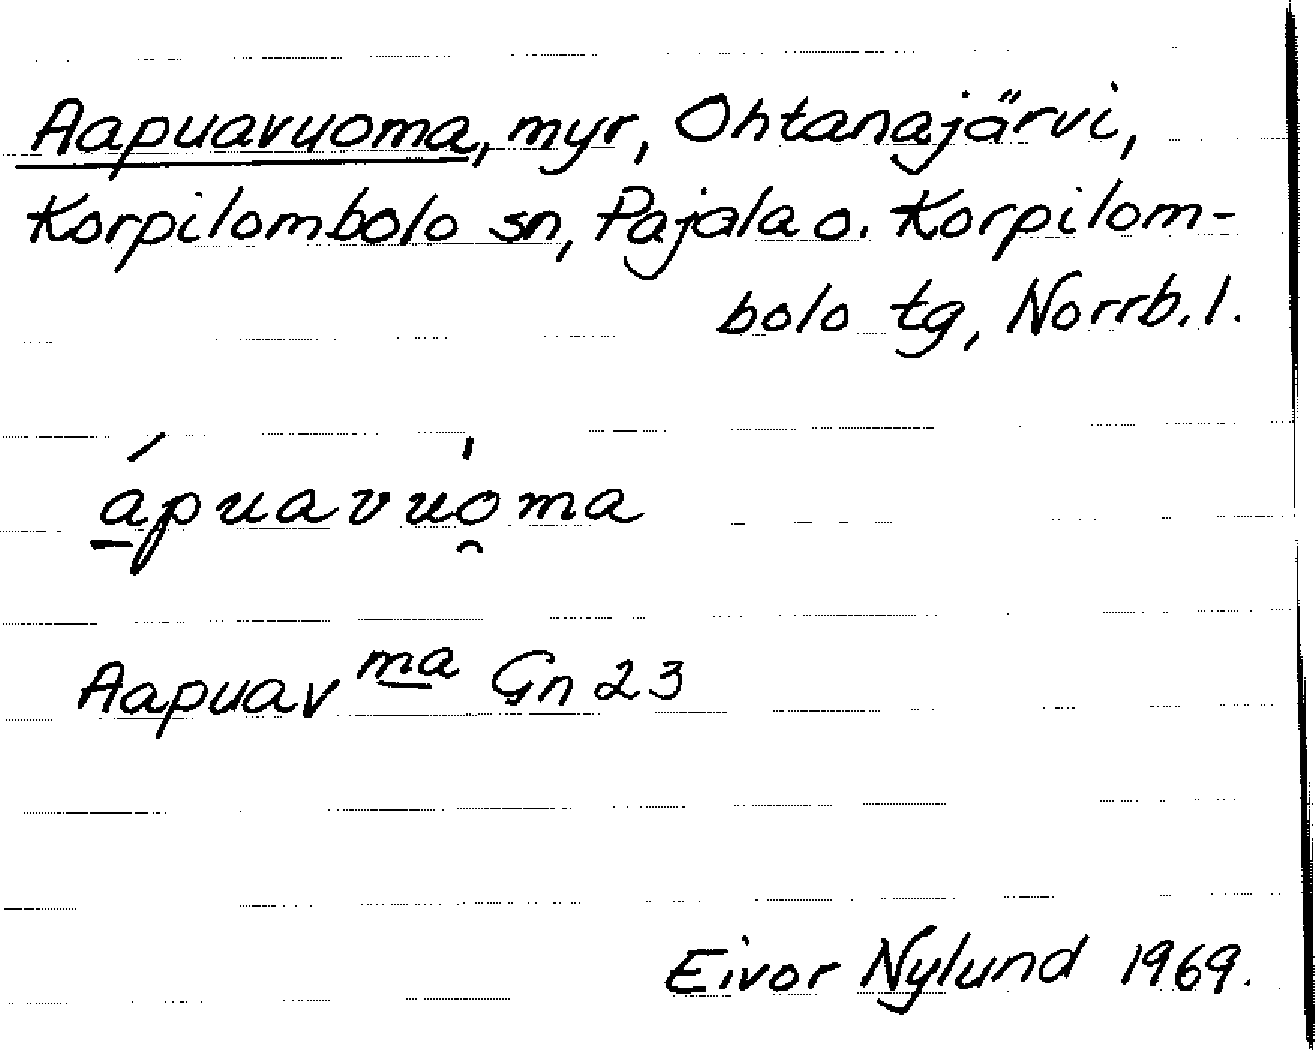 Aapuavuoma, myr, Ohtanajärvi,
Korpilombolo sn, Pajala o. Korpilom-
bolo tg, Norrb. l.
á̱puavuo̯̍ma
Aapuav ma Gn 23
Eivor Nylund 1969.